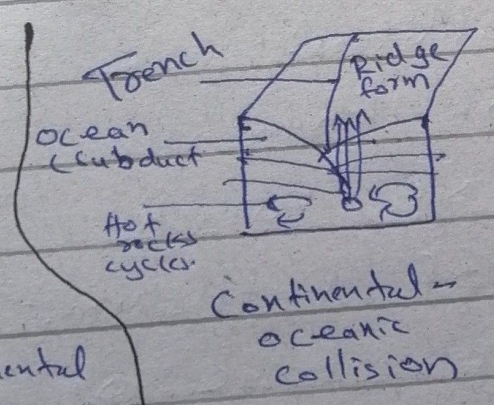 Trench
Ridge
form
Ocean
(Subduct
Hot
rocks
cycles.
Continental -
oceanic
collision
ental